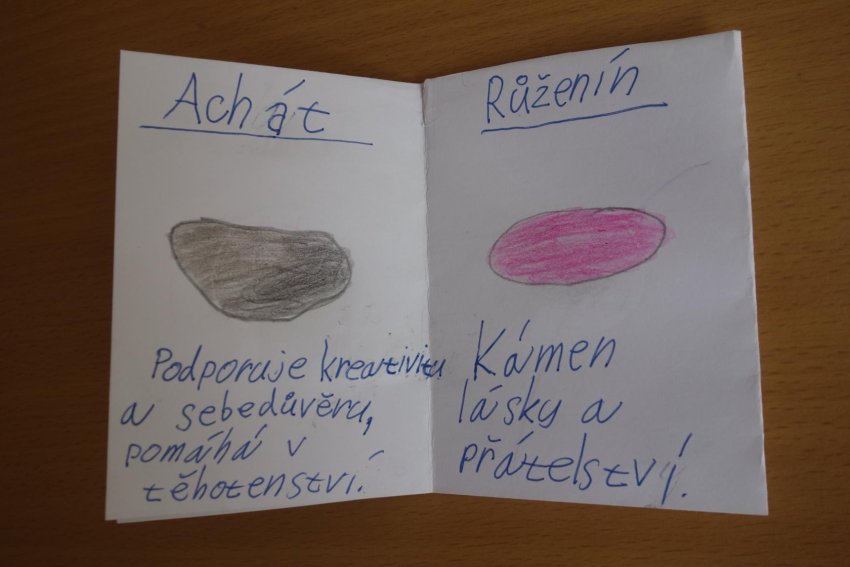 Achát
Podporuje kreativitu
a sebedůvěru,
pomáhá v
těhotenství.
Růženín
Kámen
lásky a
přátelství.